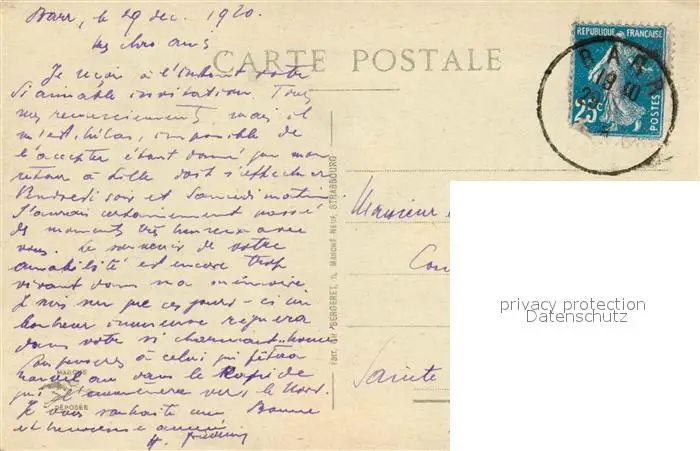 Barr, le 29 dec. 1920.
CARTE POSTALE
Je reçois à l'instant votre
si aimable invitation. Tous
mes remerciements, mais il
m'est, hélas, impossible de
l'accepter étant donné que mon
retour à Lille doit s'effectuer
Vendredi soir et Samedi matin.
J'aurais certainement passé
des moments très heureux avec
vous. Le souvenir de votre
amabilité est encore trop
vivant dans ma mémoire.
Je suis sur que ces jours-ci un
bonheur immense regnera
dans votre si charmant "home"
penserez à celui qui fêtera
nouvel an dans le Rapide
qui l'amènera vers le Nord.
Je vous souhaite une Bonne
et heureuse année
H.
MARQUE
DÉPOSÉE
EDIT. BERGERET, MARCHÉ-NEUF, STRASBOURG
REPUBLIQUE FRANÇAISE
25c
POSTES
BARR
Monsieur
Sainte
privacy protection
Datenschutz